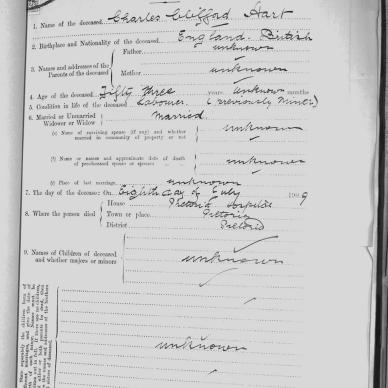 1. Name of the deceased Charles Clifford Hart
2. Birthplace and Nationality of the deceased England. British
3. Names and addresses of the Parents of the deceased
Father unknown
Mother unknown
4. Age of the deceased Fifty Three years unknown months
5. Condition in life of the deceased Labourer (Previously Miner)
6. Married or Unmarried Widower or Widow Married
(a) Name of surviving spouse (if any) and whether married in community of property or not unknown
(b) Name or names and approximate date of death of pre-deceased spouse or spouses unknown
(c) Place of last marriage unknown
7. The day of the decease: On Eighth day of July 1909
8. Where the person died
House Pretoria Hospital
Town or place Pretoria
District Pretoria
9. Names of Children of deceased and whether majors or minors
unknown
unknown